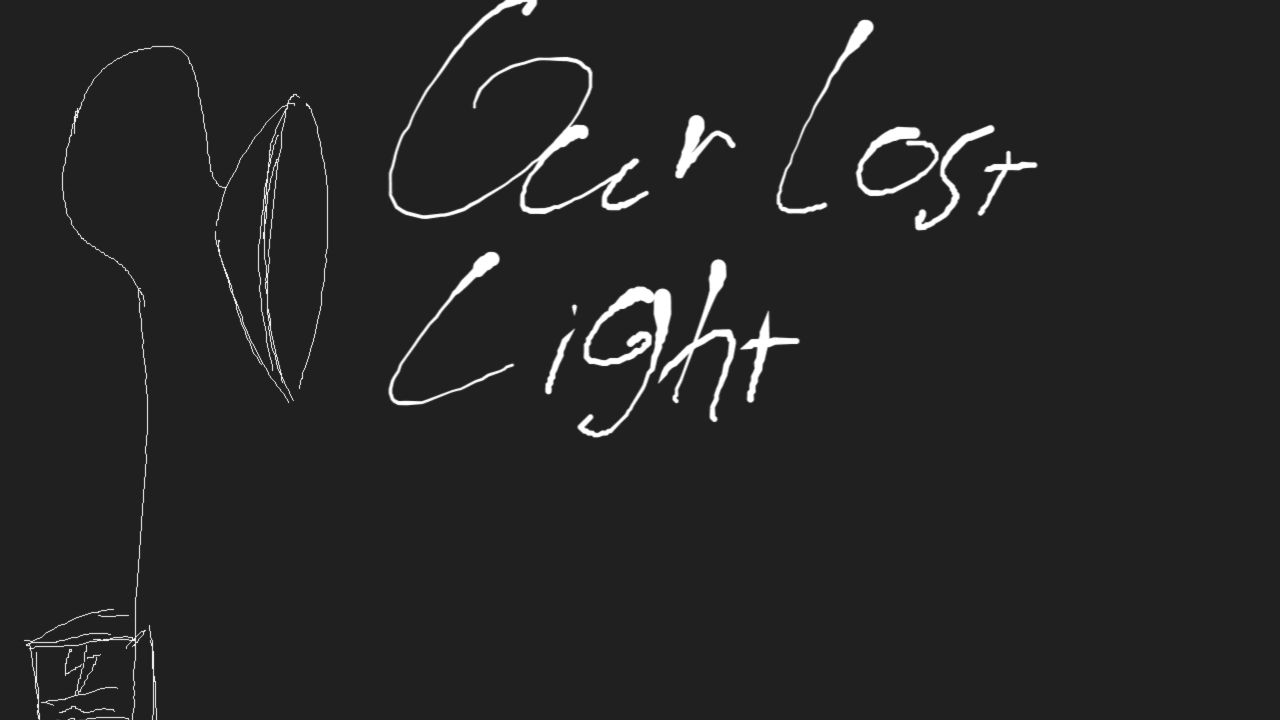 Our Lost
Light